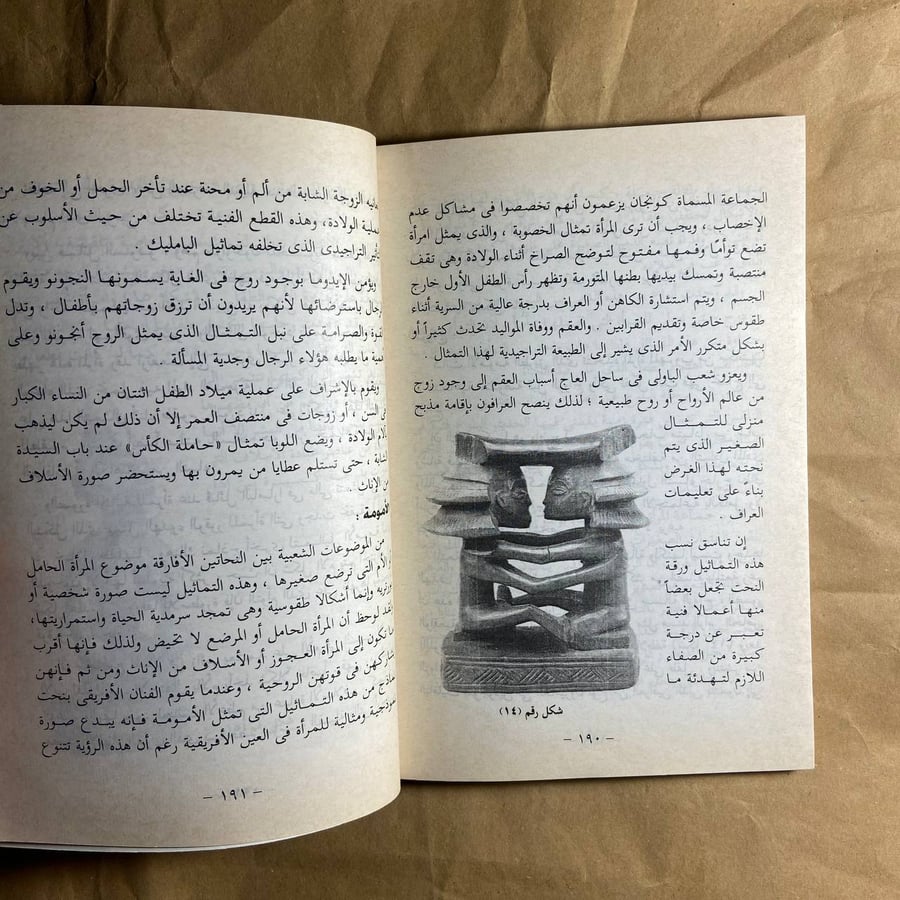 الجماعة المسماة كونجان يزعمون أنهم تخصصوا فى مشاكل عدم
الإخصاب ، ويجب أن ترى المرأة تمثال الخصوبة ، والذى يمثل امرأة
تضع توأمًا وفمها مفتوح لتوضح الصراخ أثناء الولادة وهى تقف
منتصبة وتمسك بيديها بطنها المتورمة وتظهر رأس الطفل الأول خارج
الجسم ، ويتم استشارة الكاهن أو العراف بدرجة عالية من السرية أثناء
طقوس خاصة وتقديم القرابين . والعقم ووفاة المواليد تحدث كثيراً أو
بشكل متكرر الأمر الذى يشير إلى الطبيعة التراجيدية لهذا التمثال .
ويعزو شعب الباولى فى ساحل العاج أسباب العقم إلى وجود زوج
من عالم الأرواح أو روح طبيعية ؛ لذلك ينصح العرافون بإقامة مذبح
منزلى للتمثال
الصغير الذى يتم
نحته لهذا الغرض
بناءً على تعليمات
العراف .
إن تناسق نسب
هذه التماثيل ورقة
النحت تجعل بعضاً
منها أعمالا فنية
تعبر عن درجة
كبيرة من الصفاء
اللازم لتهدئة ما
شكل رقم (١٤)
– ١٩٠ –
الزوجة الشابة من ألم أو محنة عند تأخر الحمل أو الخوف من
عملية الولادة، وهذه القطع الفنية تختلف من حيث الأسلوب عن
التراجيدى الذى تخلفه تماثيل الباميليك .
ويؤمن الإيدوما بوجود روح فى الغابة يسمونها النجونو ويقوم
الرجال باسترضائها لأنهم يريدون أن ترزق زوجاتهم بأطفال ، وتدل
القوة والصرامة على نبل التمثال الذى يمثل الروح أنجونو وعلى
ما يطلبه هؤلاء الرجال وجدية المسألة .
ويقوم بالإشراف على عملية ميلاد الطفل اثنتان من النساء الكبار
فى السن ، أو زوجات فى منتصف العمر إلا أن ذلك لم يكن ليذهب
الولادة ، ويضع اللوبا تمثال «حاملة الكأس» عند باب السيدة
الشابة ، حتى تستلم عطايا من يمرون بها ويستحضر صورة الأسلاف
من الإناث .
الأمومة :
من الموضوعات الشعبية بين النحاتين الأفارقة موضوع المرأة الحامل
أو الأم التى ترضع صغيرها ، وهذه التماثيل ليست صورة شخصية أو
وإنما أشكالا طقوسية وهى تمجد سرمدية الحياة واستمراريتها،
لوحظ أن المرأة الحامل أو المرضع لا تحيض ولذلك فإنها أقرب
ما تكون إلى المرأة العجوز أو الأسلاف من الإناث ومن ثم فإنهن
يشاركهن فى قوتهن الروحية ، وعندما يقوم الفنان الأفريقى بنحت
نماذج من هذه التماثيل التى تمثل الأمومة فإنه يبدع صورة
نموذجية ومثالية للمرأة فى العين الأفريقية رغم أن هذه الرؤية تتنوع
– ١٩١ –